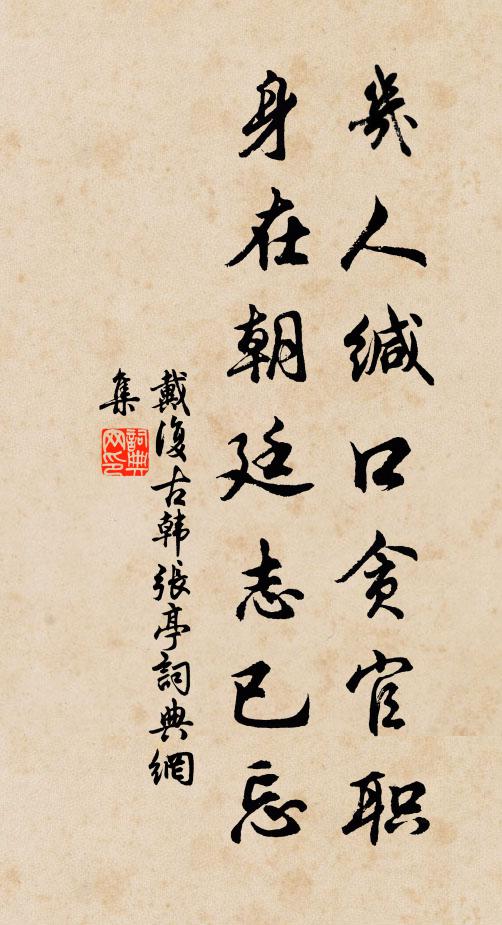 幾人缄口贪官职
身在朝廷志已忘
戴復古韩張亭詞典網
集
詞典网印